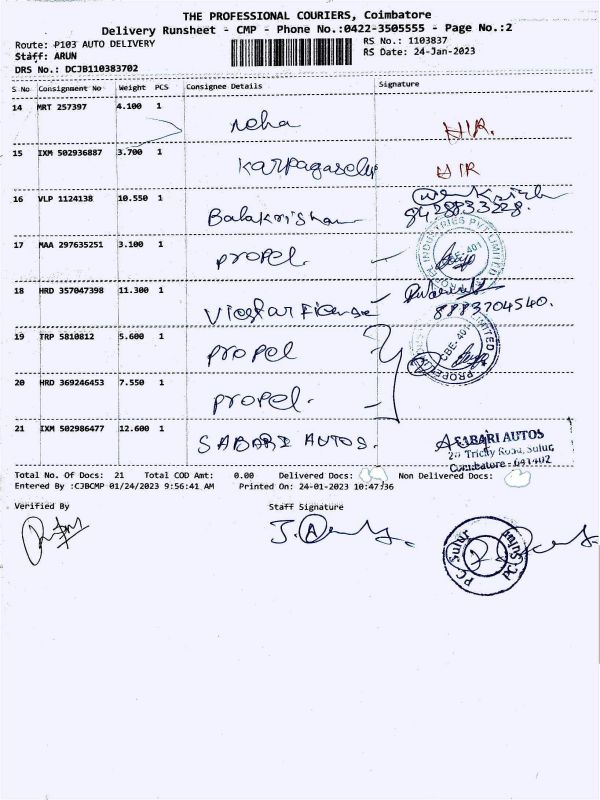 THE PROFESSIONAL COURIERS, Coimbatore
Delivery Runsheet - CMP - Phone No.:0422-3505555 - Page No.:2
Route: P103 AUTO DELIVERY
RS No.: 1103837
Staff: ARUN
RS Date: 24-Jan-2023
DRS No.: DCJB110383702
S No Consignment No Weight PCS Consignee Details Signature
14 MRT 257397 4.100 1 neha HIR.
15 IXM 502936887 3.700 1 Karpagaselvi HIR
16 VLP 1124138 10.550 1 Balakrishan 9428833228.
17 MAA 297635251 3.100 1 propel. INDUSTRIES PVT LIMITED CBE- 401
18 HRD 357047398 11.300 1 8883704540.
19 TRP 5810812 5.600 1 propel PROPEL LIMITED CBE- 401
20 HRD 369246453 7.550 1 propel.
21 IXM 502986477 12.600 1 SABARI AUTOS. SABARI AUTOS
Tricity Road, Sulur,
Coimbatore - 641402
Total No. Of Docs: 21 Total COD Amt: 0.00 Delivered Docs: Non Delivered Docs:
Entered By :CJBCMP 01/24/2023 9:56:41 AM Printed On: 24-01-2023 10:47:36
Verified By Staff Signature
PC Sulur PC Sulur